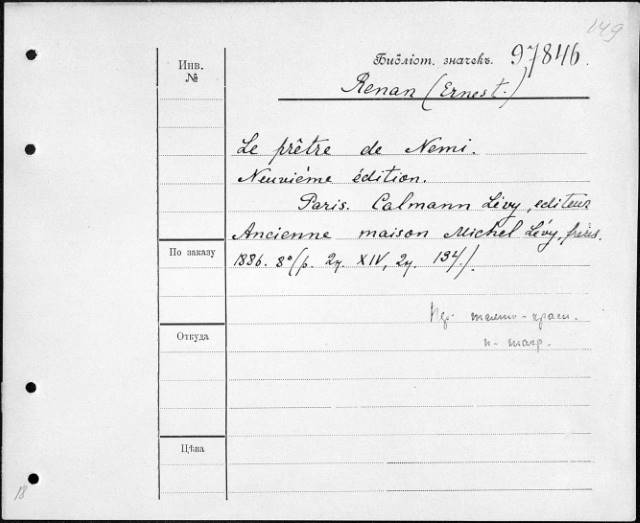 149
Инв.
№
Библіот. значекъ. 97846.
Renan (Ernest.)
Le prêtre de Nemi.
Neuvième édition.
Paris. Calmann Lévy, editeur
Ancienne maison Michel Lévy, frères.
1886. 8° (p. 2 XIV, 2 134.)
По заказу
Откуда
Цѣна
18